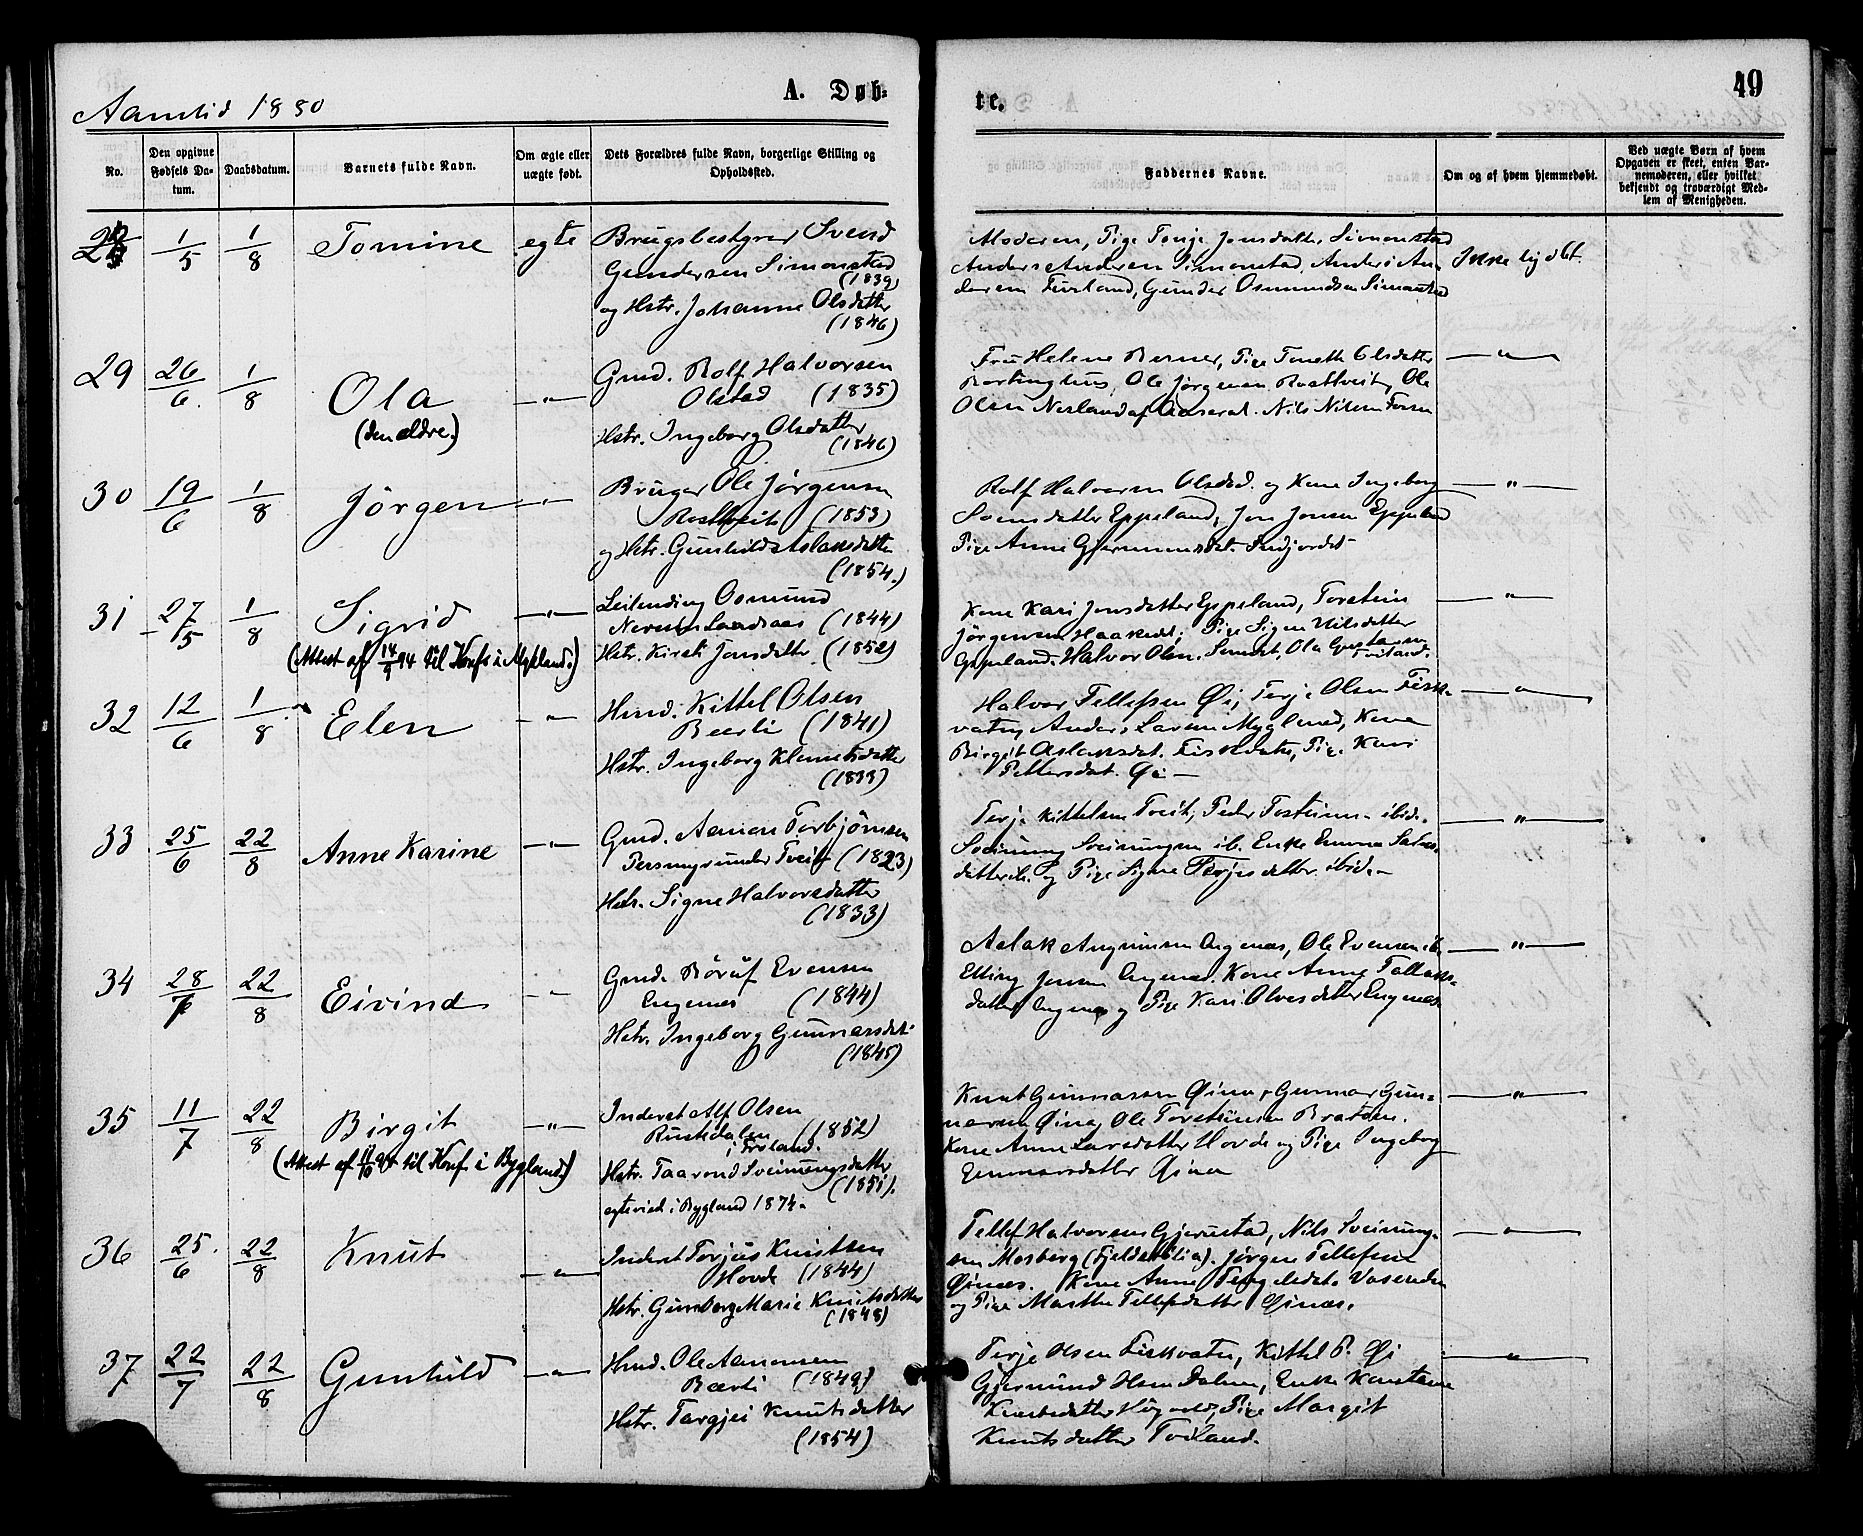 Aamlid 1880
A. Døb-
te.
49
No.
Den opgivne Fødsels Datum.
Daabsdatum.
Barnets fulde Navn.
Om ægte eller uægte født.
Dets Forældres fulde Navn, borgerlige Stilling og Opholdssted.
Faddernes Navne.
Om og af hvem hjemmedøbt.
Ved uægte Børn af hvem Opgaven er skeet, enten Barnemoderen, eller hvilket bekjendt og troværdigt Medlem af Menigheden.
1/5 1/8 Tomine egte Brugsbestyrer Svend
Gundersen Simonstad
(1839)
og Hstr. Johanne Olsdatter
(1846)
Moderen, Pige Tonje Jonsdatter Simonstad
Anders Andersen Simonstad, Anders An-
dersen Gunder Osmundsen Simonstad
Ikke hj. dbt.
29 26/6 1/8 Ola —"—
(den eldre.)
Gmd. Rolf Halvorsen
Olstad (1835)
Hstr. Ingeborg Olsdatter
(1846)
Fru Helene Berner, Pige Olsdatter
Ole Jørgensen Ole
Olsen Nils Nilsen
—"—
30 19/6 1/8 Jörgen —"—
Bruger Ole Jørgensen
(1853)
og Hstr. Gunhild Aslaksdatter
(1854.)
Rolf Halvorsen Olstad. og Kone Ingeborg
Svensdatter Eppeland, Jon Jonsen Eppeland
Pige Anne
—"—
31 27/5 1/8 Sigrid —"—
(Attest af 14/4 94 til Konf. i Mykland.)
Leilending Osmund
(1844)
Hstr. Kirsti Jonsdatter (1852)
Kone Kari Jonsdatter Eppeland, Torstein
Jørgensen Haakedal, Pige Signe Nilsdatter
Eppeland. Halvor Olsen. Ola
—"—
32 12/6 1/8 Elen —"—
Hmd. Kittel Olsen
Beerli (1841)
Hstr. Ingeborg Klemetsdatter
(1833)
Halvor Tellefsen Øi, Terje Olsen Fisk-
vatn, Anders Larsen Mygland, Kone
Birgit Aslaksdat. Pige Kari
Pettersdat. Øi —
—"—
33 25/6 22/8 Anne Karine —"—
Gmd. Aanon Torbjörnsen
under Tveit (1823)
Hstr. Signe Halvorsdatter
(1833)
Terje Kittelsen Tveit, Peder ibid.
Sveinung Sveinungsen ib. Enke
datter ib. og Pige Signe Terjesdatter ibid. —
—"—
34 28/6 22/8 Eivind —"—
Gmd. Evensen
Engenes (1844)
Hstr. Ingeborg Gunnarsdat.
(1845)
Aslak Engenes, Ole Evensen ib.
Elling Jensen Engenes. Kone Anne Tallaks-
datter Engenes og Pige Kari Olvesdatter Engenes
—"—
35 11/7 22/8 Birgit —"—
(Attest af til Konf. i Bygland.)
Inderst Alf Olsen
Rustdalen (1852)
i Froland.
Hstr. Taarond Sveinungsdatter
(1851).
egteviet i Bygland 1874.
Knut Gunnarsen Øina, Gunnar Gun-
narsen Øina, Ole Torsteinsen Bratten.
Kone Anne Larsdatter Hovde og Pige Ingeborg
Gunnarsdatter Øina
—"—
36 25/6 22/8 Knut —"—
Inderst Torjus Knutsen
Hovde (1844)
Hstr. Gunborg Marie Knutsdatter
(1848)
Tellef Halvorsen Gjerustad, Nils Sveinung-
sen Mosberg Jørgen Tellefsen
Øinæs. Kone Anne
og Pige Marthe Tellefsdatter Øinæs.
—"—
37 22/7 22/8 Gunhild —"—
Hmd. Ole Aanonsen
Bærli (1849)
Hstr. Targjei Knutsdatter
(1854)
Terje Olsen Fiskvatn, Kittel P. Øi
Gjermund Hsen Dalen, Enke
Knutsdatter Pige Margit
Knutsdatter Tviland.
—"—